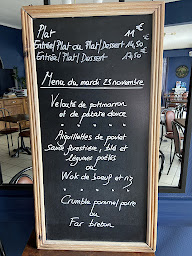 Plat 11€
Entrée/Plat ou Plat/Dessert 14,50€
Entrée/Plat/Dessert 17,50
Menu du mardi 25 novembre
Velouté de potimarron
et de patate douce
Aiguillettes de poulet
Sauce forestière, blé et
légumes poêlés
ou
Wok de boeuf et riz
Crumble pomme/poire
ou
Far breton